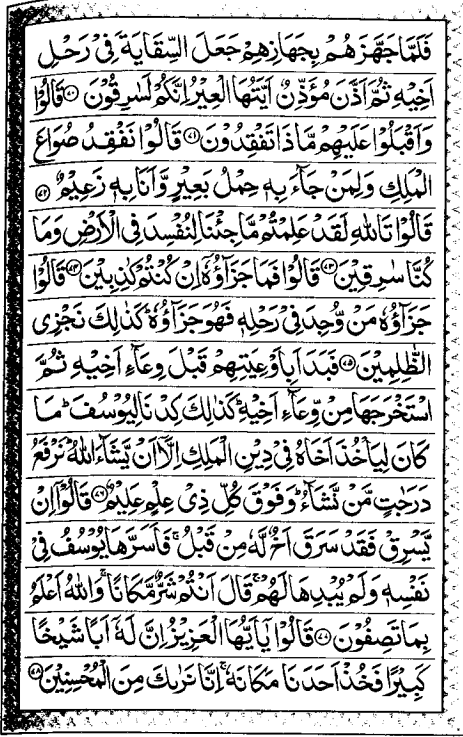 فَلَمَّا جَهَّزَهُمْ بِجَهَازِهِمْ جَعَلَ السِّقَايَةَ فِيْ رَحْلِ
اَخِيْهِ ثُمَّ اَذَّنَ مُؤَذِّنٌ اَيَّتُهَا الْعِيْرُ اِنَّكُمْ لَسٰرِقُوْنَ ﴿۷۰﴾ قَالُوْا
وَاَقْبَلُوْا عَلَيْهِمْ مَّاذَا تَفْقِدُوْنَ ﴿۷۱﴾ قَالُوْا نَفْقِدُ صُوَاعَ
الْمَلِكِ وَلِمَنْ جَآءَ بِهٖ حِمْلُ بَعِيْرٍ وَّاَنَا بِهٖ زَعِيْمٌ ﴿۷۲﴾
قَالُوْا تَاللّٰهِ لَقَدْ عَلِمْتُمْ مَّا جِئْنَا لِنُفْسِدَ فِي الْاَرْضِ وَمَا
كُنَّا سٰرِقِيْنَ ﴿۷۳﴾ قَالُوْا فَمَا جَزَآؤُهٗۤ اِنْ كُنْتُمْ كٰذِبِيْنَ ﴿۷۴﴾ قَالُوْا
جَزَآؤُهٗ مَنْ وُّجِدَ فِيْ رَحْلِهٖ فَهُوَ جَزَآؤُهٗ ؕ كَذٰلِكَ نَجْزِي
الظّٰلِمِيْنَ ﴿۷۵﴾ فَبَدَاَ بِاَوْعِيَتِهِمْ قَبْلَ وِعَآءِ اَخِيْهِ ثُمَّ
اسْتَخْرَجَهَا مِنْ وِّعَآءِ اَخِيْهِ ؕ كَذٰلِكَ كِدْنَا لِيُوْسُفَ ؕ مَا
كَانَ لِيَاْخُذَ اَخَاهُ فِيْ دِيْنِ الْمَلِكِ اِلَّاۤ اَنْ يَّشَآءَ اللّٰهُ ؕ نَرْفَعُ
دَرَجٰتٍ مَّنْ نَّشَآءُ ؕ وَفَوْقَ كُلِّ ذِيْ عِلْمٍ عَلِيْمٌ ﴿۷۶﴾ قَالُوْۤا اِنْ
يَّسْرِقْ فَقَدْ سَرَقَ اَخٌ لَّهٗ مِنْ قَبْلُ ۚ فَاَسَرَّهَا يُوْسُفُ فِيْ
نَفْسِهٖ وَلَمْ يُبْدِهَا لَهُمْ ۚ قَالَ اَنْتُمْ شَرٌّ مَّكَانًا ۚ وَاللّٰهُ اَعْلَمُ
بِمَا تَصِفُوْنَ ﴿۷۷﴾ قَالُوْا يٰۤاَيُّهَا الْعَزِيْزُ اِنَّ لَهٗۤ اَبًا شَيْخًا
كَبِيْرًا فَخُذْ اَحَدَنَا مَكَانَهٗ ۚ اِنَّا نَرٰىكَ مِنَ الْمُحْسِنِيْنَ ﴿۷۸﴾